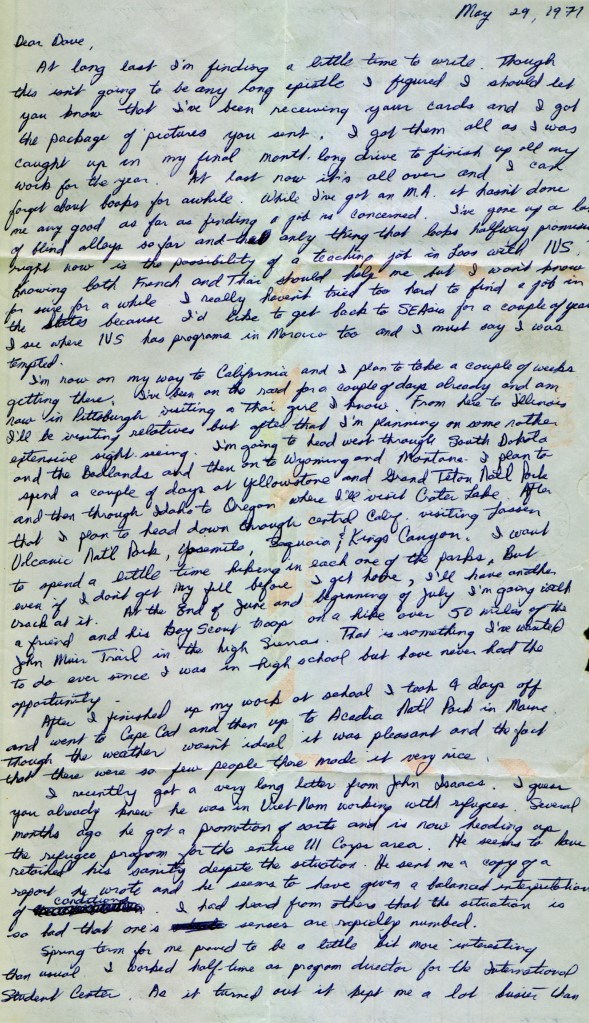 May 29, 1971
Dear Dave,
At long last I'm finding a little time to write. Though
this isn't going to be any long epistle I figured I should let
you know that I've been receiving your cards and I got
the package of pictures you sent. I got them all as I was
caught up in my final month long drive to finish up all my
work for the year. At last now it's all over and I can
forget about books for awhile. While I've got an M.A. it hasn't done
me any good as far as finding a job is concerned. I've gone up a lot
of blind alleys so far and the only thing that looks halfway promising
right now is the possibility of a teaching job in Laos with IVS.
Knowing both French and Thai should help me but I won't know
for sure for a while. I really haven't tried too hard to find a job in
the states because I'd like to get back to SEAsia for a couple of years
I see where IVS has programs in Morocco too and I must say I was
tempted.
I'm now on my way to California and I plan to take a couple of weeks
getting there. I've been on the road for a couple of days already and am
now in Pittsburgh visiting a Thai girl I know. From here to Illinois
I'll be visiting relatives but after that I'm planning on some rather
extensive sight-seeing. I'm going to head west through South Dakota
and the Badlands and then on to Wyoming and Montana. I plan to
spend a couple of days at Yellowstone and Grand Teton Nat'l Park
and then through Idaho to Oregon where I'll visit Crater Lake. After
that I plan to head down through central Calif. visiting Lassen
Volcanic Nat'l Park, Yosemite, Sequoia & Kings Canyon. I want
to spend a little time hiking in each one of the parks. But
even if I don't get my fill before I get home, I'll have another
crack at it. At the end of June and beginning of July I'm going with
a friend and his Boy Scout troop on a hike over 50 miles of the
John Muir Trail in the high Sierras. That is something I've wanted
to do ever since I was in high school but have never had the
opportunity.
After I finished up my work at school I took 4 days off
and went to Cape Cod and then up to Acadia Nat'l Park in Maine.
Though the weather wasn't ideal it was pleasant and the fact
that there were so few people there made it very nice.
I recently got a very long letter from John Isaacs. I guess
you already knew he was in Viet Nam working with refugees. Several
months ago he got a promotion of sorts and is now heading up
the refugee program for the entire III Corps area. He seems to have
retained his sanity despite the situation. He sent me a copy of a
report he wrote and he seems to have given a balanced interpretation
of conditions. I had heard from others that the situation is
so bad that one's senses are rapidly numbed.
Spring term for me proved to be a little bit more interesting
than usual. I worked half-time as program director for the International
Student Center. As it turned out it kept me a lot busier than